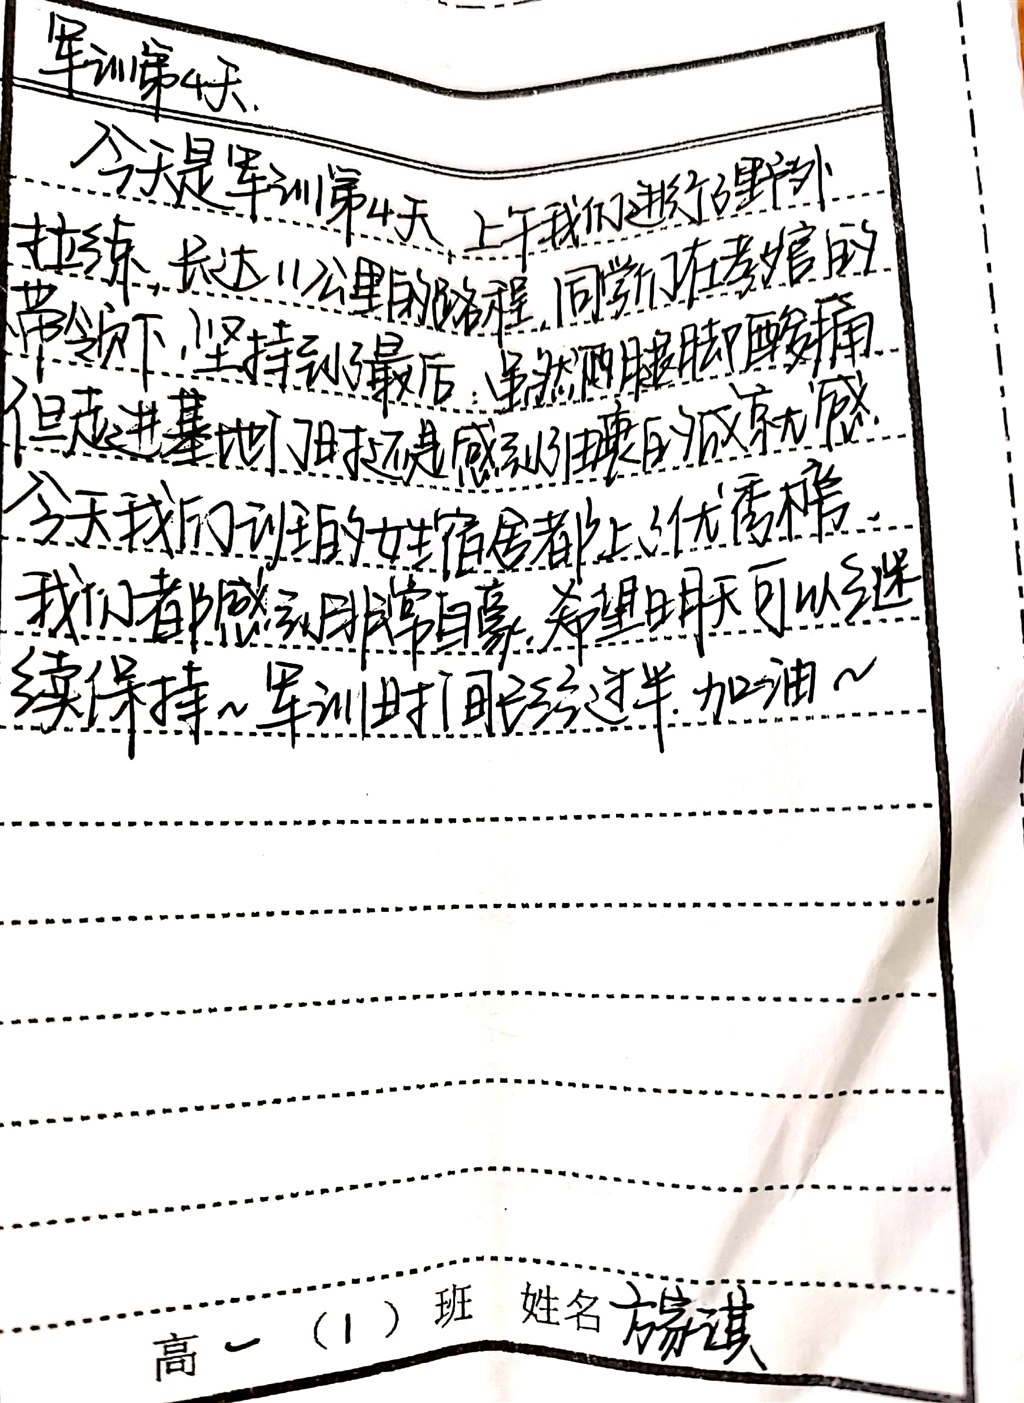 军训第4天.
今天是军训第4天,上午我们进行了野外
拉练,长达11公里的路程,同学们在教官的
带领下,坚持到了最后.虽然两腿脚酸痛
但走进基地门时还是感到由衷的成就感.
今天我们班的女生宿舍都上了优秀榜.
我们都感到非常自豪.希望明天可以继
续保持~军训时间已经过半.加油~
高一(1)班 姓名 方家淇